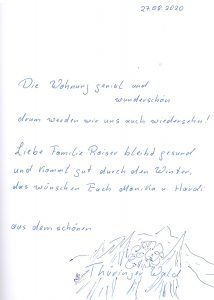 27.08.2020
Die Wohnung genial und
wunderschön
drum werden wir uns auch wiedersehn!
Liebe Familie Rainer bleibt gesund
und kommt gut durch den Winter,
das wünschen Euch Monika u. Hardi
aus dem schönen
Thüringer Wald